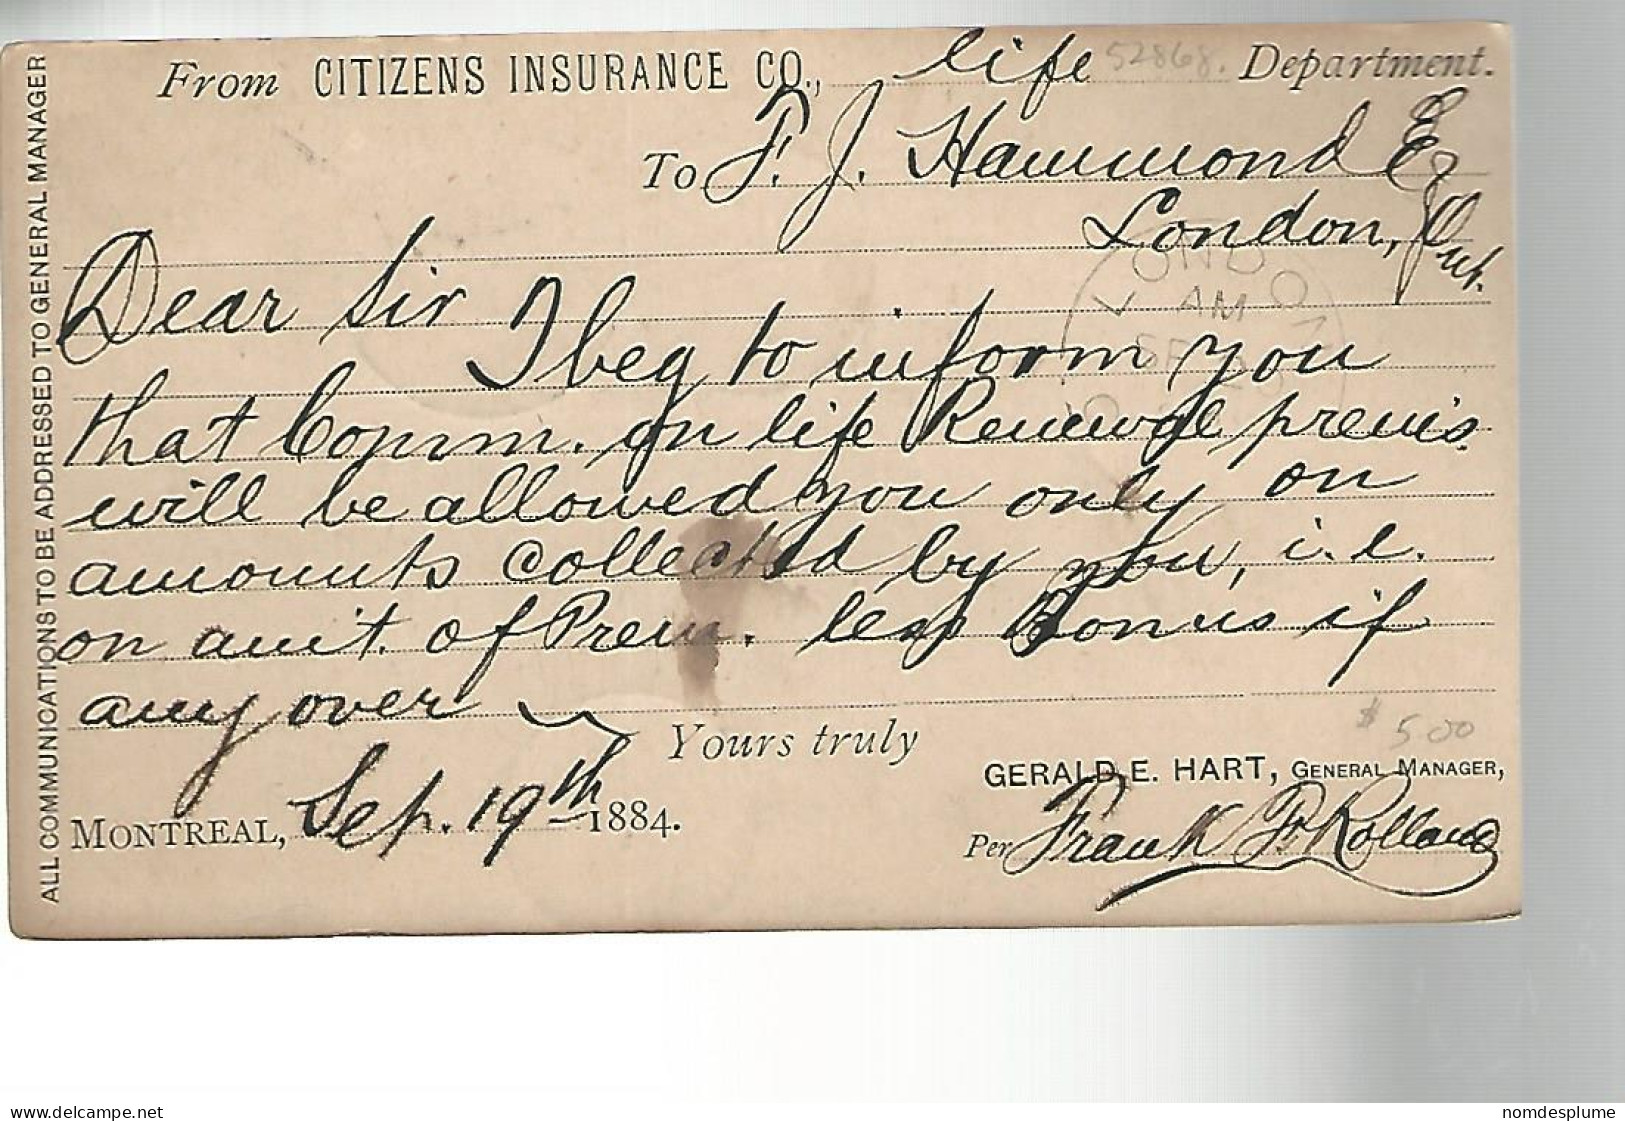 From CITIZENS INSURANCE CO., life 52868. Department.
To F. J. Hammond Eq
London, Ont.
Dear Sir
I beg to inform you
that Comm. on life Renewal prem's
will be allowed you only on
amounts collected by you, i.e.
on am't. of Prem. less Bonus if
any over
Yours truly
$5.00
GERALD E. HART, GENERAL MANAGER,
MONTREAL, Sep. 19th 1884.
Per Frank
ALL COMMUNICATIONS TO BE ADDRESSED TO GENERAL MANAGER
LONDON
AM
SE 20
delcampe.net
nomdesplume